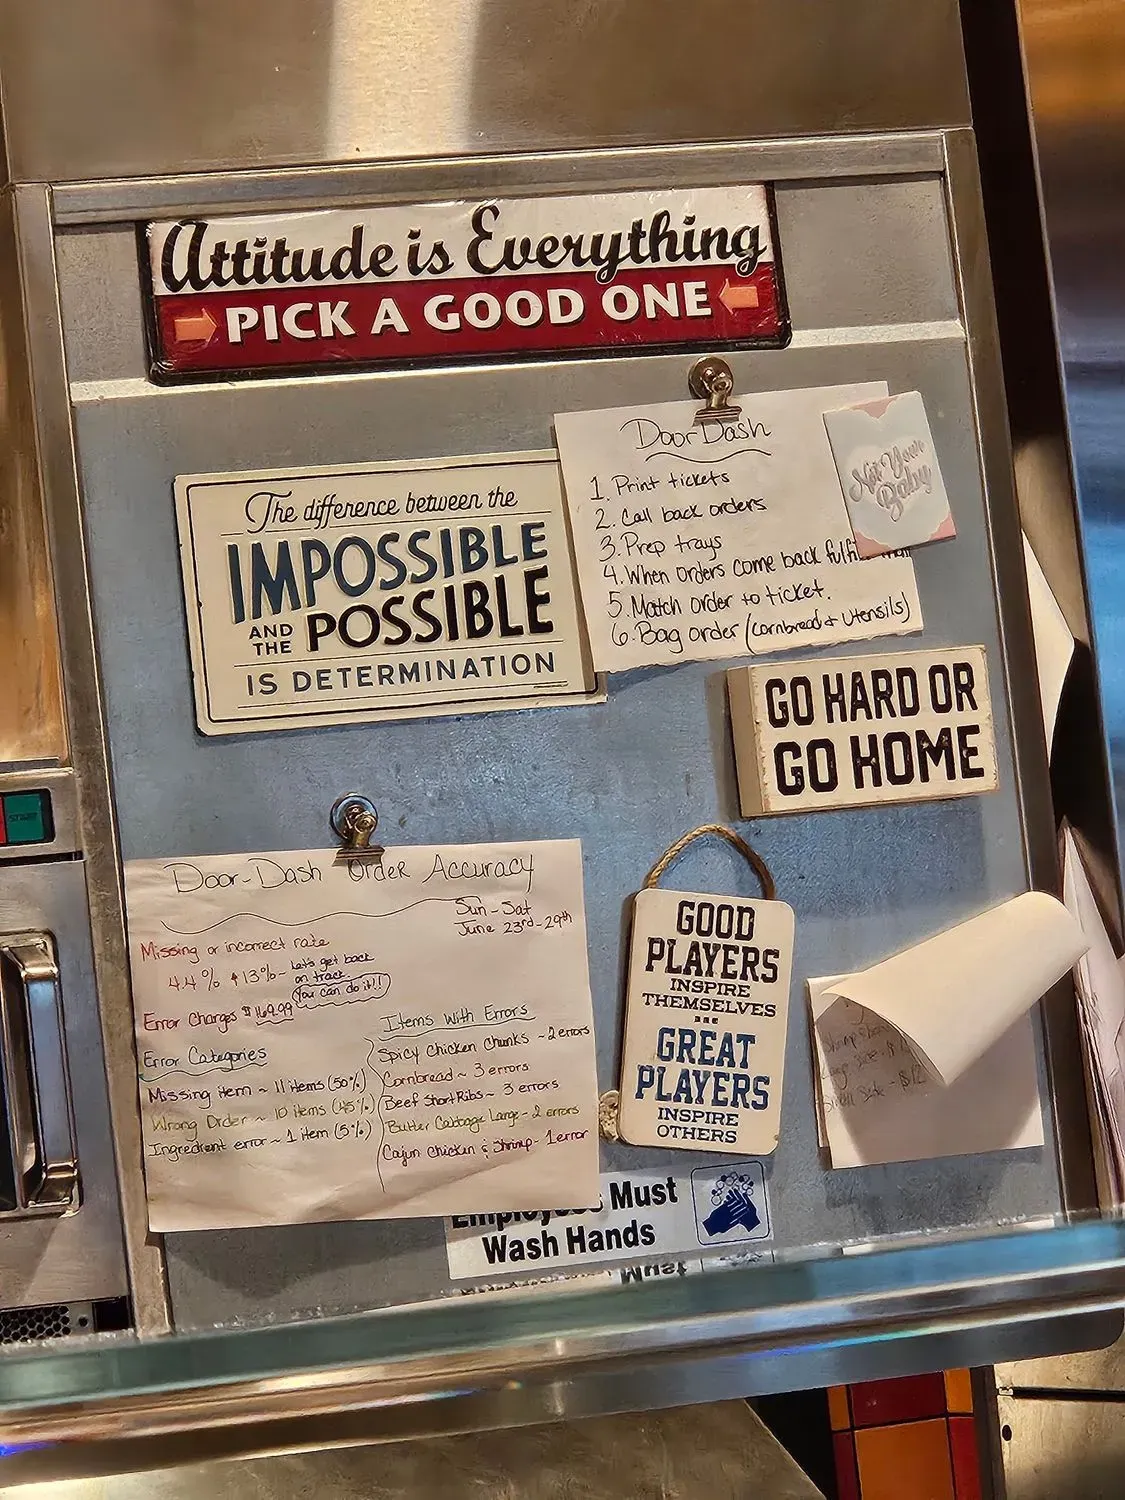 Attitude is Everything
PICK A GOOD ONE
The difference between the
IMPOSSIBLE
AND THE POSSIBLE
IS DETERMINATION
DoorDash
1. Print tickets
2. Call back orders
3. Prep trays
4. When orders come back
5. Match order to ticket.
6. Bag order (cornbread & utensils)
Not Your
Baby
GO HARD OR
GO HOME
Door-Dash Order Accuracy
Sun-Sat
June 23rd-29th
Missing or incorrect rate
4.4% 13% - Let's get back
on track.
You can do it!!
Error Charges $169.99
Error Categories
Missing item ~ 11 items (50%)
Wrong Order ~ 10 items (45%)
Ingredient error ~ 1 item (5%)
Items With Errors
Spicy Chicken Chunks ~ 2 errors
Cornbread ~ 3 errors
Beef Short Ribs ~ 3 errors
Butter Cabbage Large - 2 errors
Cajun Chicken & Shrimp - 1 error
GOOD
PLAYERS
INSPIRE
THEMSELVES
GREAT
PLAYERS
INSPIRE
OTHERS
Employees Must
Wash Hands
START